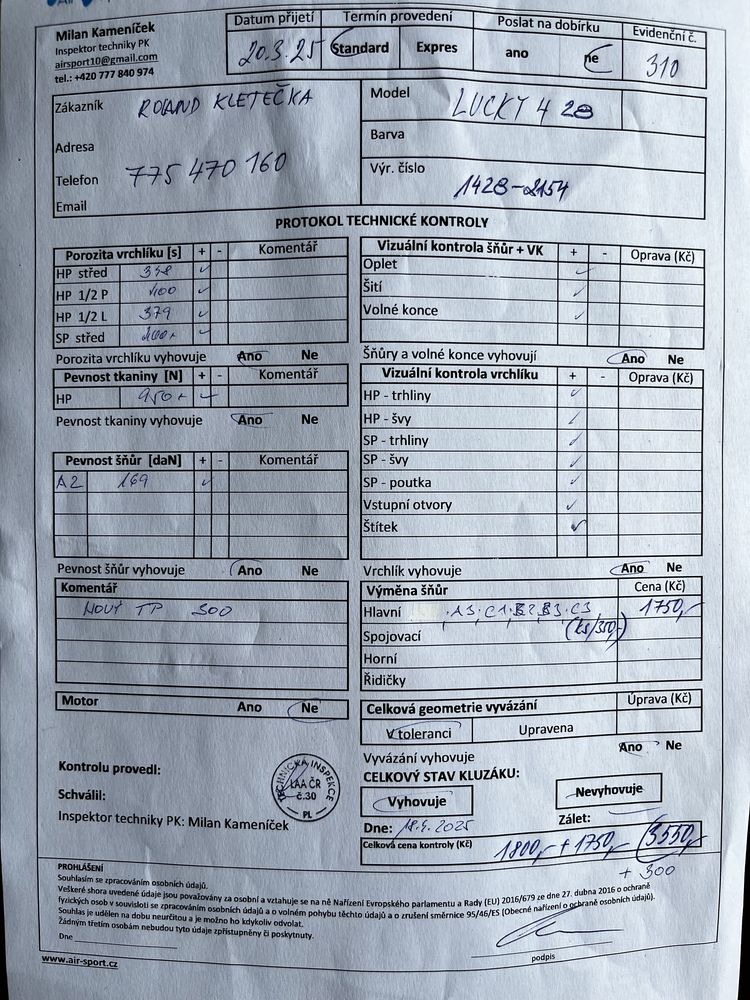 Milan Kameníček
Inspektor techniky PK
airsport10@gmail.com
tel.: +420 777 840 974
Datum přijetí
20.3.25
Termín provedení
Standard Expres
Poslat na dobírku
ano ne
Evidenční č.
310
Zákazník ROLAND KLETEČKA
Adresa
Telefon 775 470 160
Email
Model LUCKY 4 28
Barva
Výr. číslo
1428-2154
PROTOKOL TECHNICKÉ KONTROLY
Porozita vrchlíku [s] + - Komentář
HP střed 348 ✓
HP 1/2 P 400 ✓
HP 1/2 L 379 ✓
SP střed 400+ ✓
Porozita vrchlíku vyhovuje Ano Ne
Pevnost tkaniny [N] + - Komentář
HP 950+ ✓
Pevnost tkaniny vyhovuje Ano Ne
Pevnost šňůr [daN] + - Komentář
A2 169 ✓
Pevnost šňůr vyhovuje Ano Ne
Komentář
NOVÝ TP 300
Motor Ano Ne
Vizuální kontrola šňůr + VK + - Oprava (Kč)
Oplet ✓
Šití ✓
Volné konce ✓
Šňůry a volné konce vyhovují Ano Ne
Vizuální kontrola vrchlíku + - Oprava (Kč)
HP - trhliny ✓
HP - švy ✓
SP - trhliny ✓
SP - švy ✓
SP - poutka ✓
Vstupní otvory ✓
Štítek ✓
Vrchlík vyhovuje Ano Ne
Výměna šňůr Cena (Kč)
Hlavní A3, C1, B2, B3, C3 1750,-
Spojovací (ks/350,-)
Horní
Řidičky
Celková geometrie vyvázání Úprava (Kč)
V toleranci Upravena
Vyvázání vyhovuje Ano Ne
CELKOVÝ STAV KLUZÁKU:
Vyhovuje Nevyhovuje
Dne: 18.4.2025 Zálet:
Celková cena kontroly (Kč) 1800,- + 1750,- 3550,-
+ 300
Kontrolu provedl:
Schválil:
Inspektor techniky PK: Milan Kameníček
TECHNICKÁ INSPEKCE
LAA ČR
č.30
PL
PROHLÁŠENÍ
Souhlasím se zpracováním osobních údajů.
Veškeré shora uvedené údaje jsou považovány za osobní a vztahuje se na ně Nařízení Evropského parlamentu a Rady (EU) 2016/679 ze dne 27. dubna 2016 o ochraně
fyzických osob v souvislosti se zpracováním osobních údajů a o volném pohybu těchto údajů a o zrušení směrnice 95/46/ES (Obecné nařízení o ochraně osobních údajů).
Souhlas je udělen na dobu neurčitou a je možno ho kdykoliv odvolat.
Žádným třetím osobám nebudou tyto údaje zpřístupněny či poskytnuty.
Dne
podpis
www.air-sport.cz